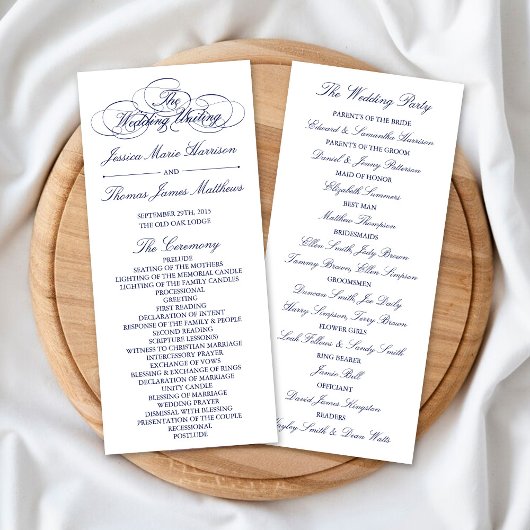 The
Wedding Uniting
Jessica Marie Harrison
AND
Thomas James Matthews
SEPTEMBER 29TH, 2015
THE OLD OAK LODGE
The Ceremony
PRELUDE
SEATING OF THE MOTHERS
LIGHTING OF THE MEMORIAL CANDLE
LIGHTING OF THE FAMILY CANDLES
PROCESSIONAL
GREETING
FIRST READING
DECLARATION OF INTENT
RESPONSE OF THE FAMILY & PEOPLE
SECOND READING
SCRIPTURE LESSON(S)
WITNESS TO CHRISTIAN MARRIAGE
INTERCESSORY PRAYER
EXCHANGE OF VOWS
BLESSING & EXCHANGE OF RINGS
DECLARATION OF MARRIAGE
UNITY CANDLE
BLESSING OF MARRIAGE
WEDDING PRAYER
DISMISSAL WITH BLESSING
PRESENTATION OF THE COUPLE
RECESSIONAL
POSTLUDE
The Wedding Party
PARENTS OF THE BRIDE
Edward & Samantha Harrison
PARENTS OF THE GROOM
Daniel & Jenny Patterson
MAID OF HONOR
Elizabeth Summers
BEST MAN
Matthew Thompson
BRIDESMAIDS
Ellen Smith, Judy Brown
Tammy Brown, Ellen Simpson
GROOMSMEN
Duncan Smith, Joe Daily
Harry Simpson, Terry Brown
FLOWER GIRLS
Leah Fellows & Sandy Smith
RING BEARER
Jamie Bell
OFFICIANT
David James Kingston
READERS
Smith & Dean Watts